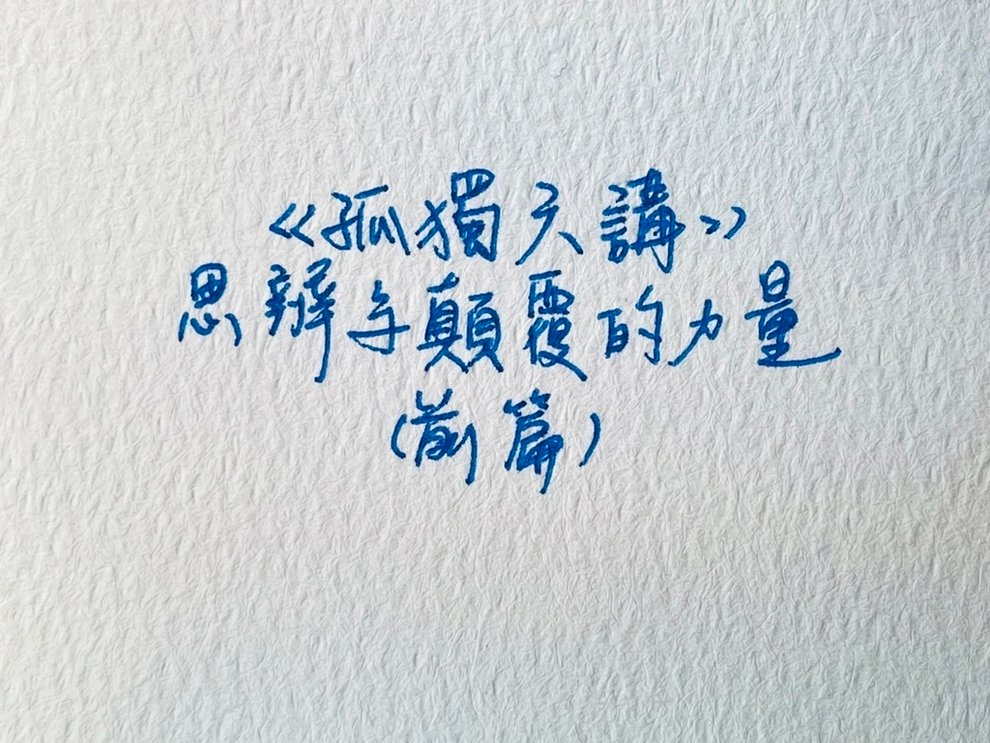 《孤獨六講》
思辨與顛覆的力量
(前篇)